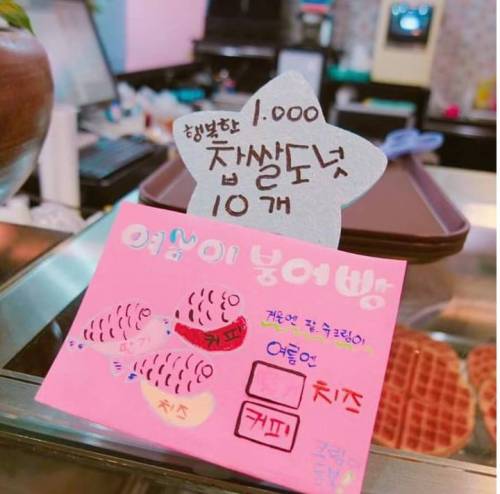 행복한 1.000
찹쌀도넛
10개
여름이 붕어빵
겨울엔 팥, 슈크림이
여름엔
딸기
커피
치즈
딸기 치즈
커피